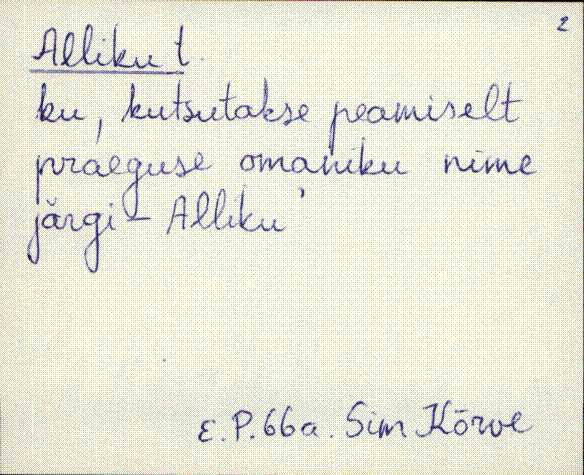 2
Alliku t.
ku, kutsutakse peamiselt
praeguse omaniku nime
järgi - Alliku'
E.P. 66a. Sim Kõrve